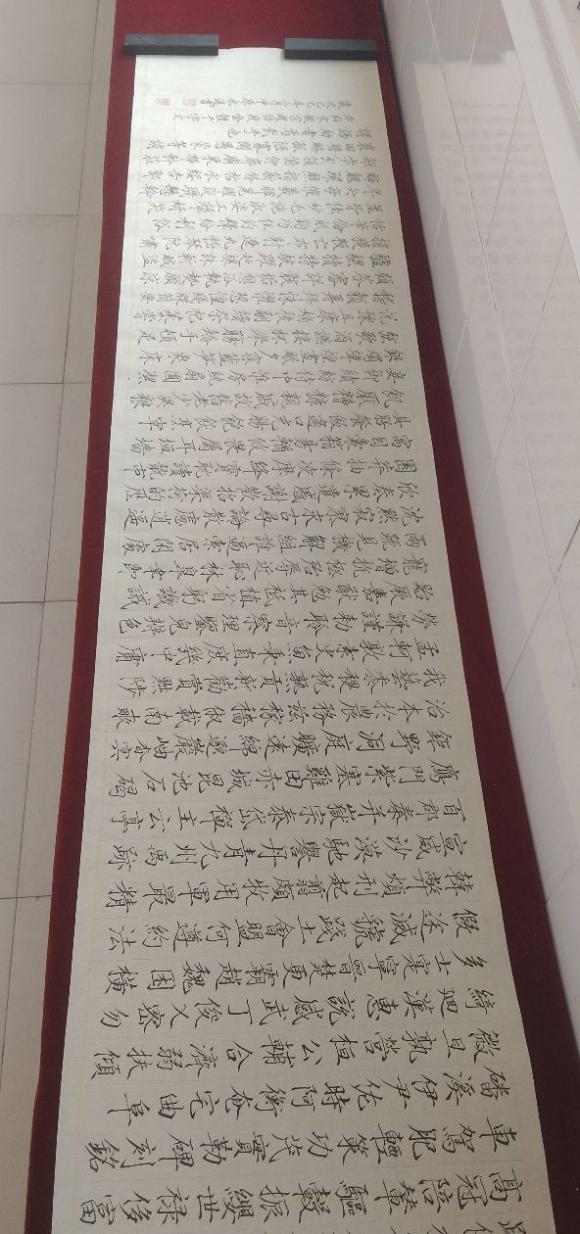 高冠陪輦驅轂振纓世禄侈富
車駕肥輕策功茂實勒碑刻銘
磻溪伊尹佐時阿衡奄宅曲阜
微旦孰營桓公輔合濟弱扶傾
綺迴漢惠說感武丁俊乂密勿
多士寔寧晉楚更霸趙魏困橫
假途滅虢踐土會盟何遵約法
韓弊煩刑起翦頗牧用軍最精
宣威沙漠馳譽丹青九州禹跡
百郡秦并嶽宗泰岱禪主云亭
鴈門紫塞雞田赤城昆池石碣
鉅野洞庭曠遠綿邈巖岫杳冥
治本於農務茲稼穡俶載南畝
我藝黍稷稅熟貢新勸賞黜陟
孟軻敦素史魚秉直庶幾中庸
勞謙謹勑聆音察理鑒皃辨色
貽厥嘉猷勉其祗植省躬譏誡
寵增抗極殆辱近恥林皋幸即
兩疏見機解組誰逼索居閑處
沈默寂寥求古尋論散慮逍遙
欣奏累遣慼謝歡招渠荷的歷
園莽抽條凌摩絳霄耽讀翫市
寓目囊箱易輶攸畏屬耳垣牆
具膳飡飯適口充腸飽飫烹宰
飢厭糟糠親戚故舊老少異糧
妾御績紡侍巾帷房紈扇圓潔
銀燭煒煌晝眠夕寐藍筍象床
弦歌酒讌接杯舉觴矯手頓足
悅豫且康嫡後嗣續祭祀蒸嘗
稽顙再拜悚懼恐惶牋牒簡要
顧答審詳骸垢想浴執熱願涼
驢騾犢特駭躍超驤誅斬賊盜
捕獲叛亡布射遼丸嵇琴阮嘯
恬筆倫紙鈞巧任釣釋紛利俗
並皆佳妙毛施淑姿工顰妍笑
年矢每催曦暉朗曜璇璣懸斡
晦魄環照指薪修祜永綏吉劭
矩步引領俯仰廊廟束帶矜莊
徘徊瞻眺孤陋寡聞愚蒙等誚
謂語助者焉哉乎也
右臨宋徽宗趙佶瘦金體千字文